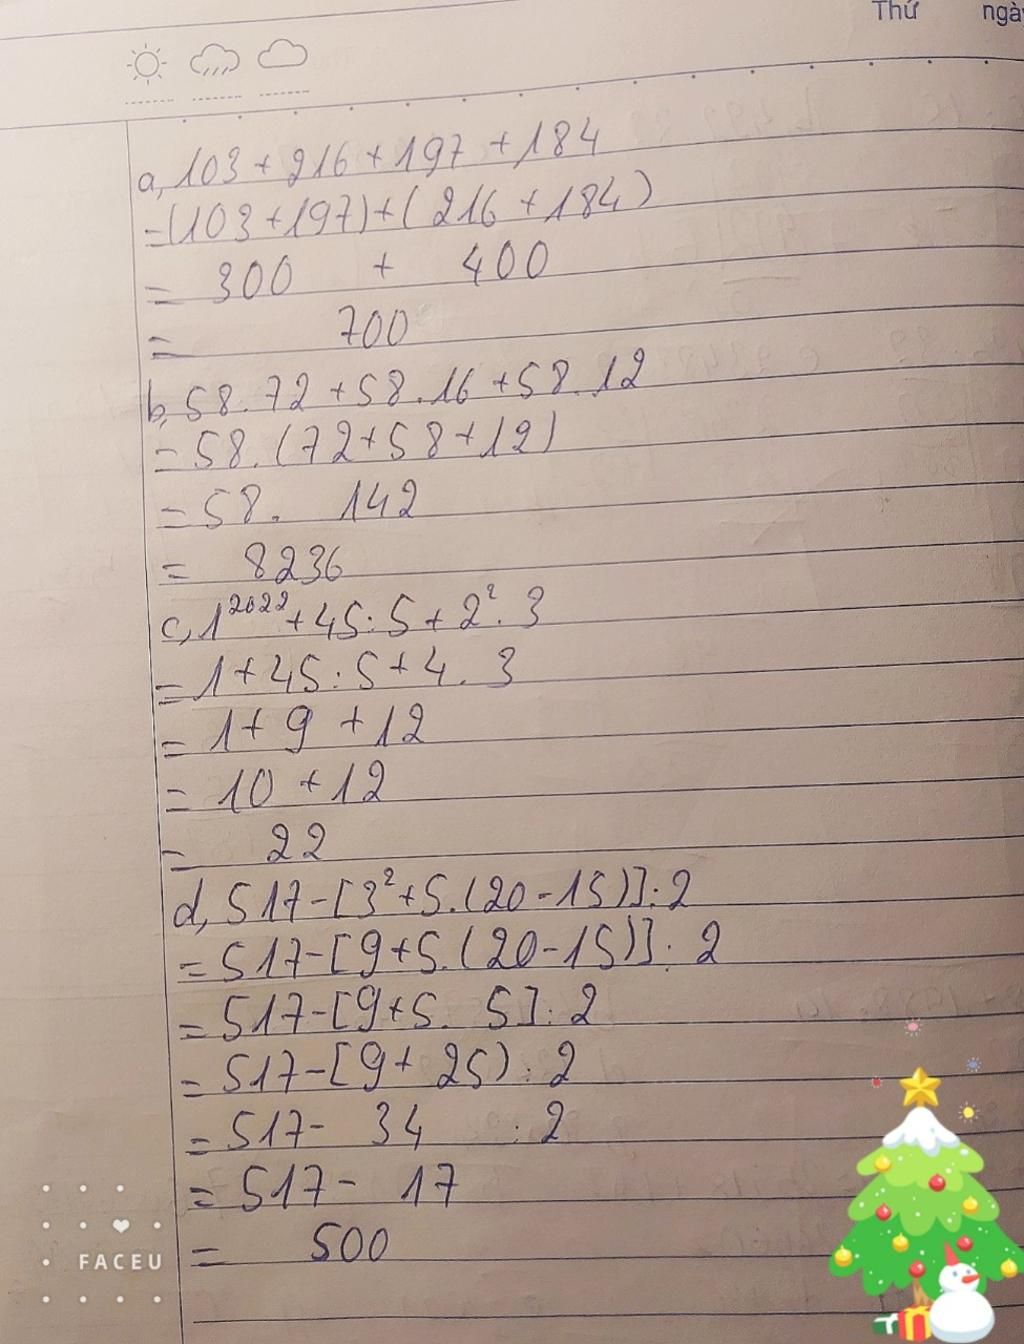 Thứ ngày
a, 103 + 216 + 197 + 184
= (103 + 197) + (216 + 184)
= 300 + 400
= 700
b, 58 . 72 + 58 . 16 + 58 . 12
= 58 . (72 + 58 + 12)
= 58 . 142
= 8236
c, 1²⁰²² + 45 : 5 + 2² . 3
= 1 + 45 : 5 + 4 . 3
= 1 + 9 + 12
= 10 + 12
= 22
d, 517 - [3² + 5 . (20 - 15)] : 2
= 517 - [9 + 5 . (20 - 15)] : 2
= 517 - [9 + 5 . 5] : 2
= 517 - [9 + 25) : 2
= 517 - 34 : 2
= 517 - 17
= 500
FACEU